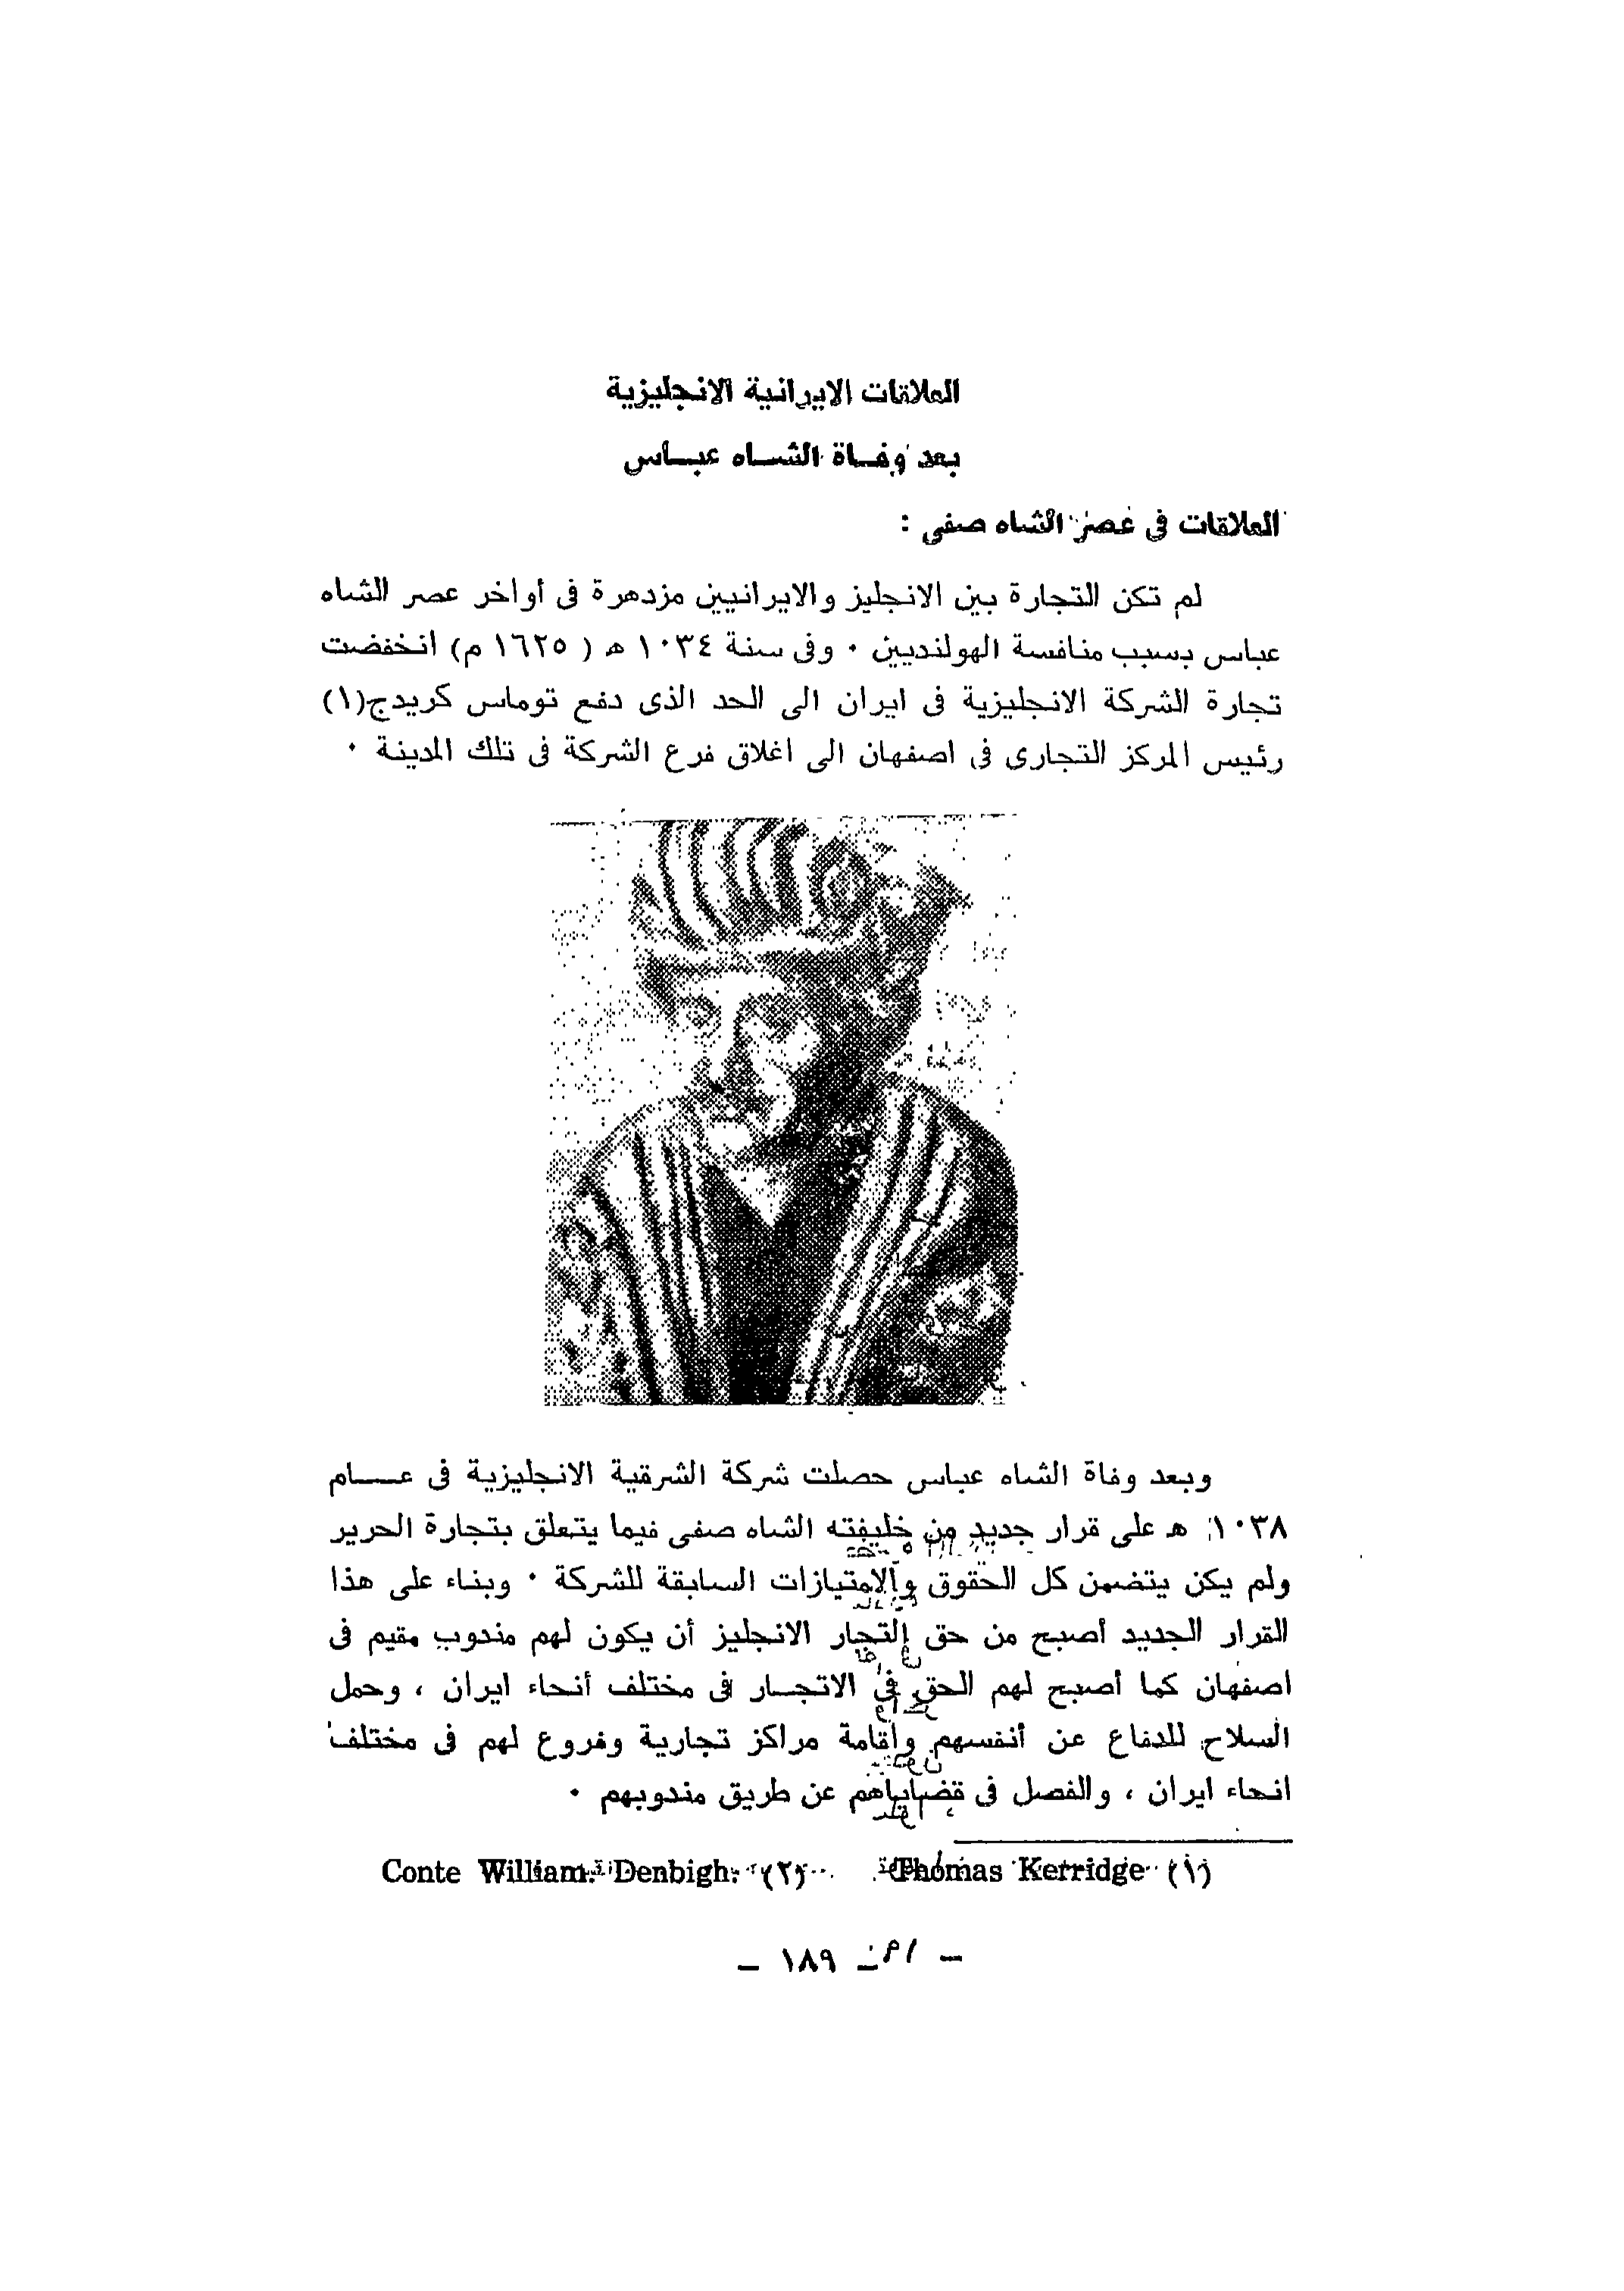 العلاقات الايرانية الانجليزية
بعد وفاة الشاه عباس
العلاقات فى عصر الشاه صفى :
لم تكن التجارة بين الانجليز والايرانيين مزدهرة فى أواخر عصر الشاه
عباس بسبب منافسة الهولنديين · وفى سنة ١٠٣٤ ه ( ١٦٢٥ م) انخفضت
تجارة الشركة الانجليزية فى ايران الى الحد الذى دفع توماس كريدج(١)
رئيس المركز التجارى فى اصفهان الى اغلاق فرع الشركة فى تلك المدينة ·
وبعد وفاة الشاه عباس حصلت شركة الشرقية الانجليزية فى عــام
١٠٣٨ ه على قرار جديد من خليفته الشاه صفى فيما يتعلق بتجارة الحرير
ولم يكن يتضمن كل الحقوق والامتيازات السابقة للشركة · وبناء على هذا
القرار الجديد أصبح من حق التجار الانجليز أن يكون لهم مندوب مقيم فى
اصفهان كما أصبح لهم الحق فى الاتجار فى مختلف أنحاء ايران ، وحمل
السلاح للدفاع عن أنفسهم واقامة مراكز تجارية وفروع لهم فى مختلف
انحاء ايران ، والفصل فى قضاياهم عن طريق مندوبهم ·
(١) Thomas Kerridge (٢) Conte William Denbigh.
– ١٨٩ –